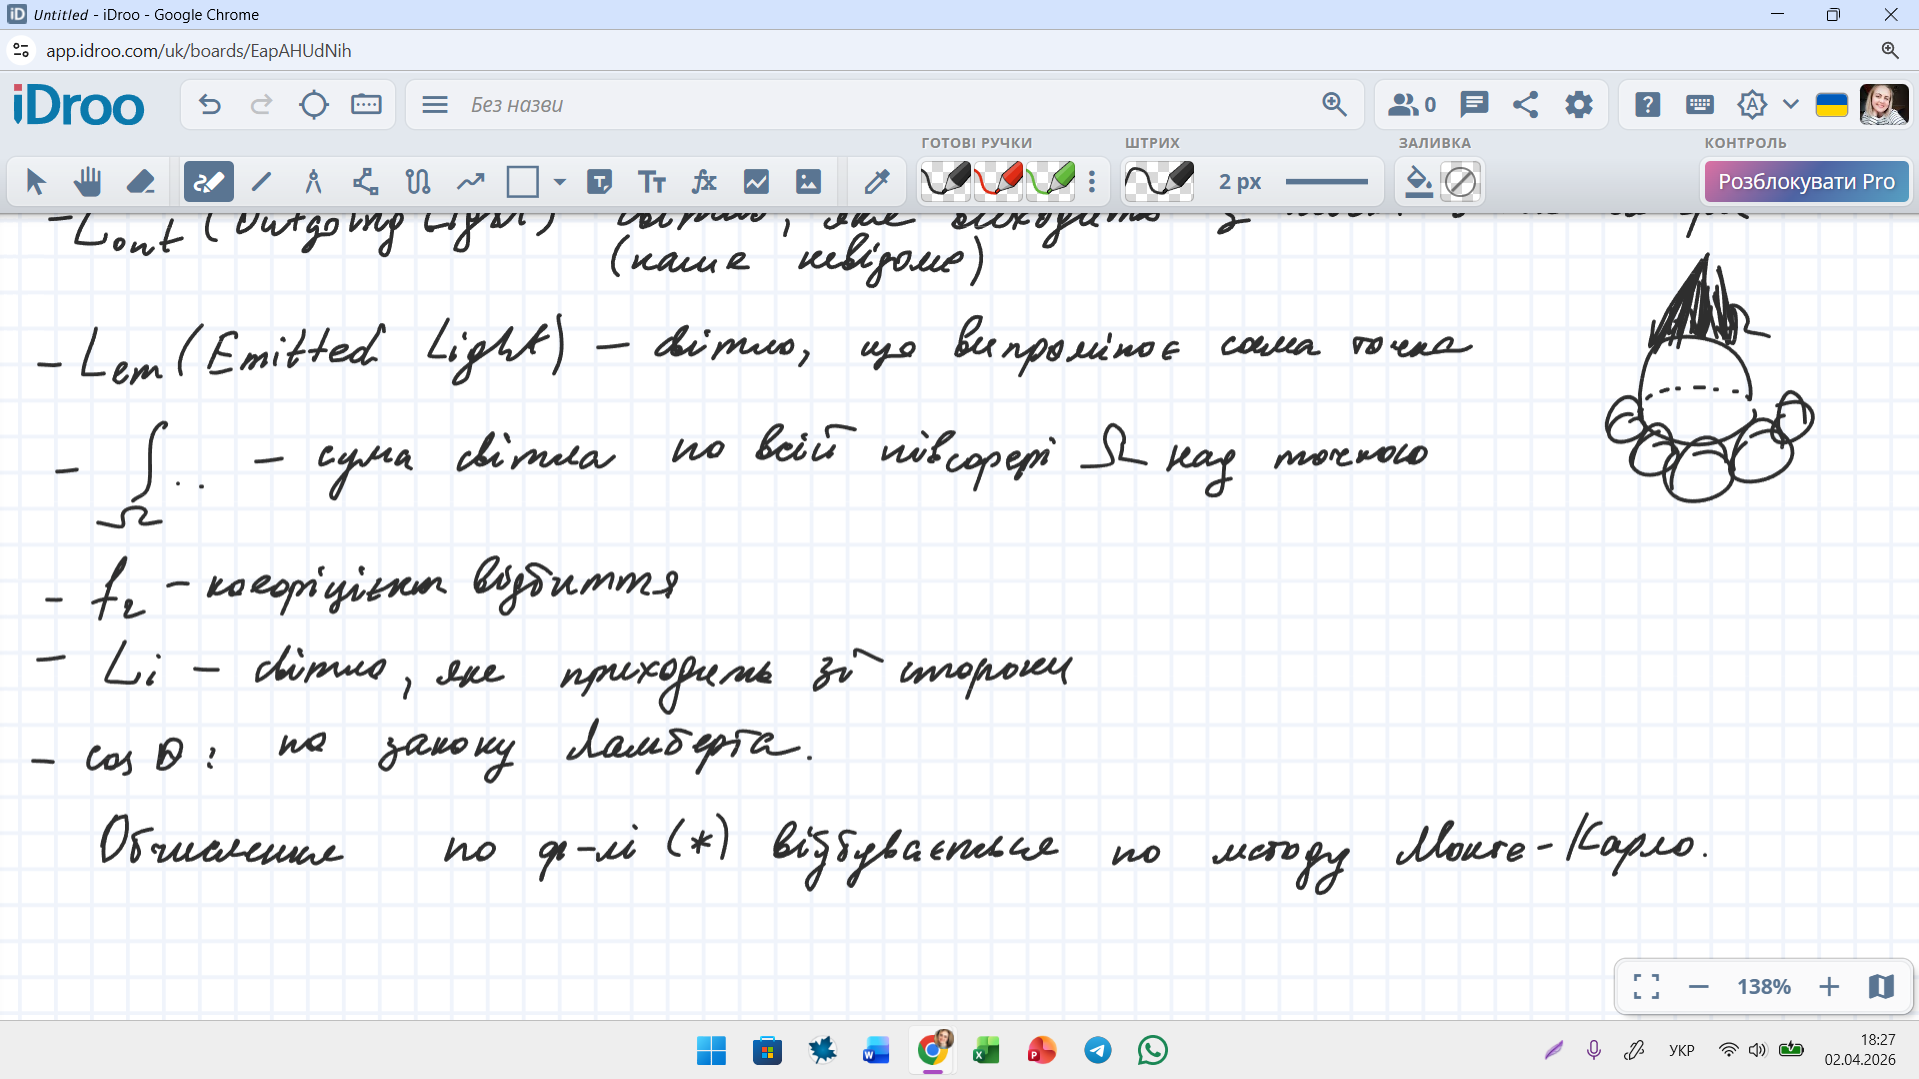 Untitled - iDroo - Google Chrome
app.idroo.com/uk/boards/EapAHUdNih
iDroo
Без назви
0
ГОТОВІ РУЧКИ
ШТРИХ
ЗАЛИВКА
КОНТРОЛЬ
2 px
Розблокувати Pro
- Lout (Outgoing Light) світло, яке виходить з
(наше невідоме)
- Lem (Emitted Light) - світло, що випромінює сама точка
- ∫Ω .. - сума світла по всій півсфері Ω над точкою
- fr - коефіцієнт відбиття
- Li - світло, яке приходить зі сторони
- cos θ: по закону Ламберта.
Обчислення по ф-лі (*) відбувається по методу Монте-Карло.
138%
УКР
18:27
02.04.2026